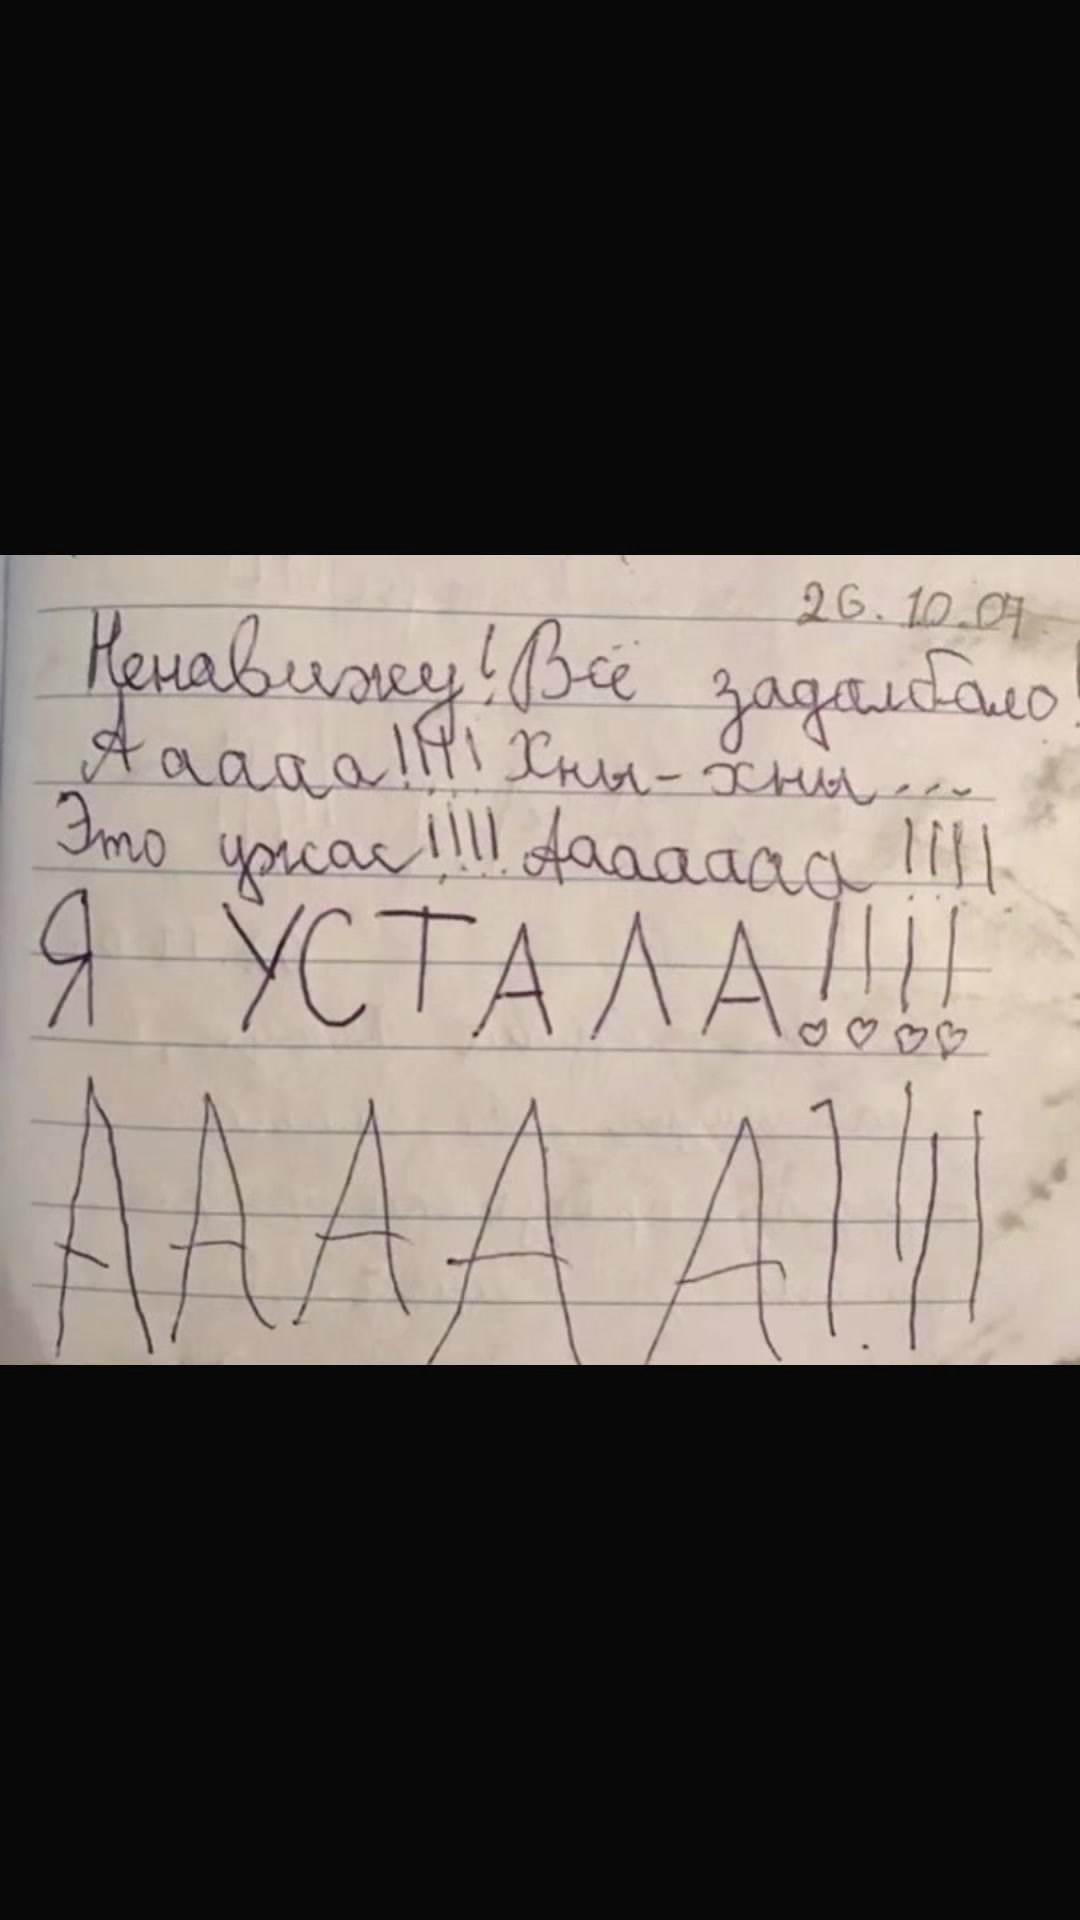 26.10.07
Ненавижу! Всё задалбало!
Ааааа!!!!! Хны-хны...
Это ужас!!!! Ааааааа !!!!
Я УСТАЛА!!!!
АААА А1!!!